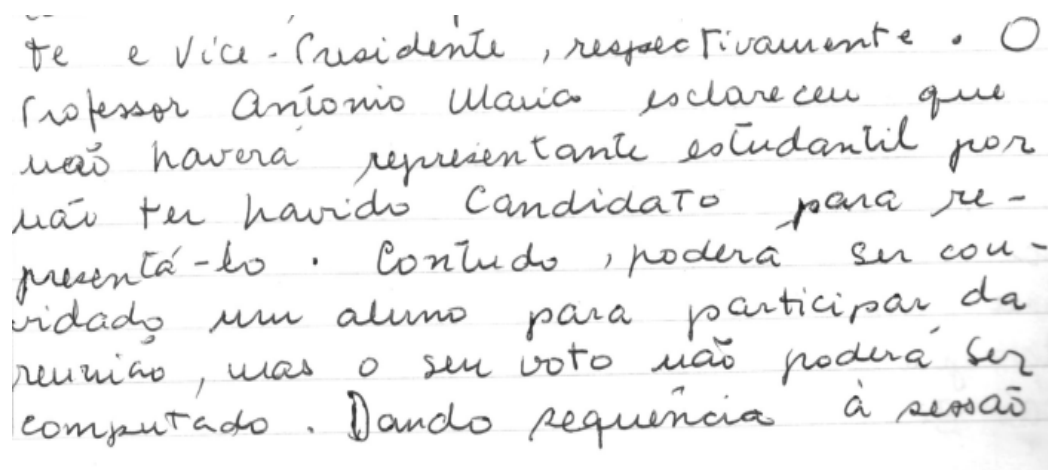 te e Vice-Presidente, respectivamente. O
Professor Antonio Maria esclareceu que
não haverá representante estudantil por
não ter havido candidato para re-
presentá-lo. Contudo, poderá ser con-
vidado um aluno para participar da
reunião, mas o seu voto não poderá ser
computado. Dando sequência à sessão